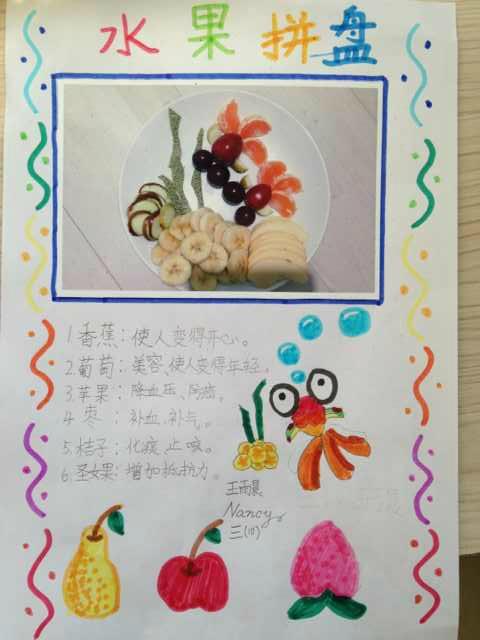 水果拼盘
1.香蕉：使人变得开心。
2.葡萄：美容、使人变得年轻。
3.苹果：降血压、防癌。
4.枣：补血、补气。
5.桔子：化痰、止咳。
6.圣女果：增加抵抗力。
王雨晨
Nancy
三(11)